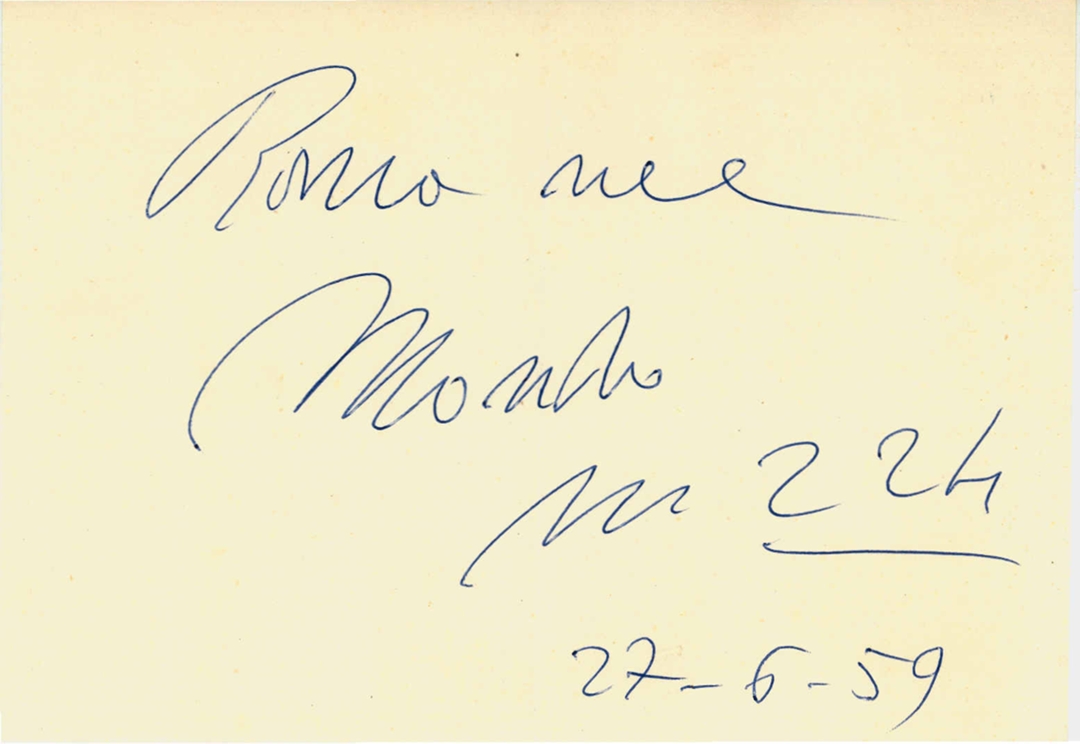 Roma nel
Mondo
m 224
27-6-59